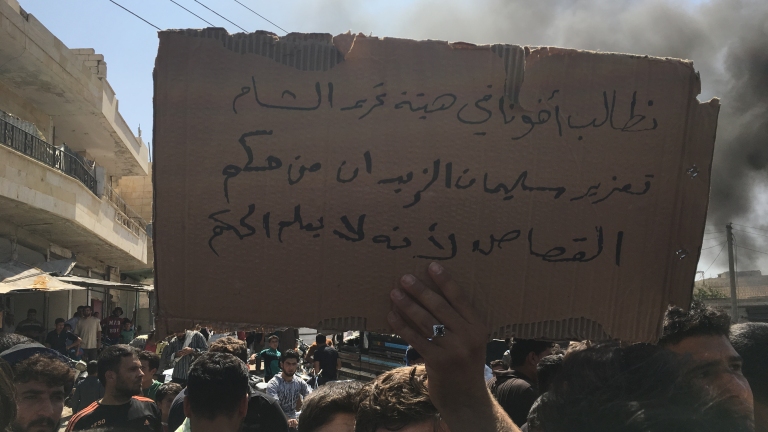 نطالب أخونا في هيئة تحرير الشام
تعزير سليمان الزيدان من حكم
القصاص لأنه لا يعلم الحكم